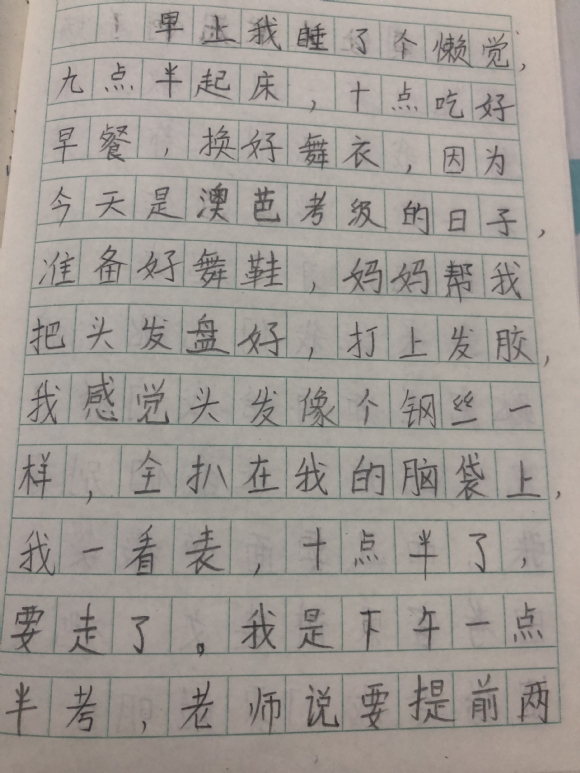 早上我睡了个懒觉，
九点半起床，十点吃好
早餐，换好舞衣，因为
今天是澳芭考级的日子，
准备好舞鞋，妈妈帮我
把头发盘好，打上发胶，
我感觉头发像个钢丝一
样，全扒在我的脑袋上，
我一看表，十点半了，
要走了。我是下午一点
半考，老师说要提前两